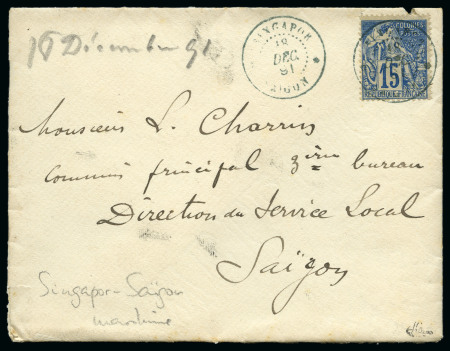 18 Décembre 91
SINGAPOR
18
DEC
91
SAIGON
COLONIES
POSTES
15
REPUBLIQUE FRANCAISE
Monsieur L. Charrin
commis principal 3ème bureau
Direction du Service Local
Saïgon
Singapor-Saïgon
maritime